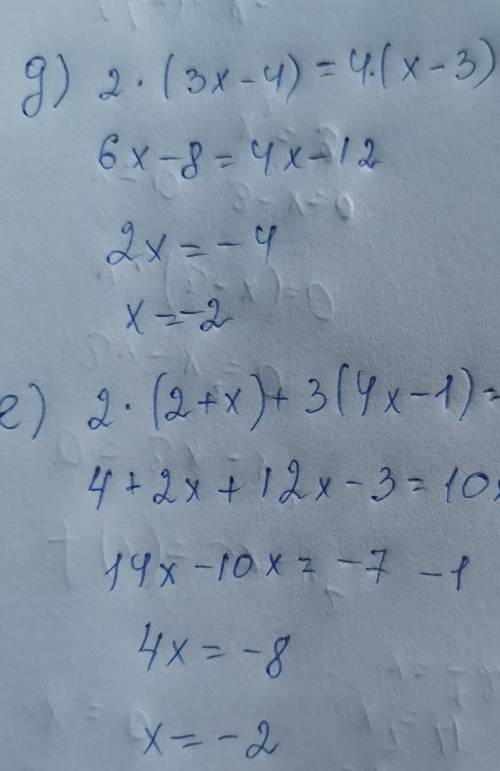 д) 2·(3x-4)=4·(x-3)
6x-8=4x-12
2x=-4
x=-2
е) 2·(2+x)+3(4x-1)=
4+2x+12x-3=10x
14x-10x=-7-1
4x=-8
x=-2